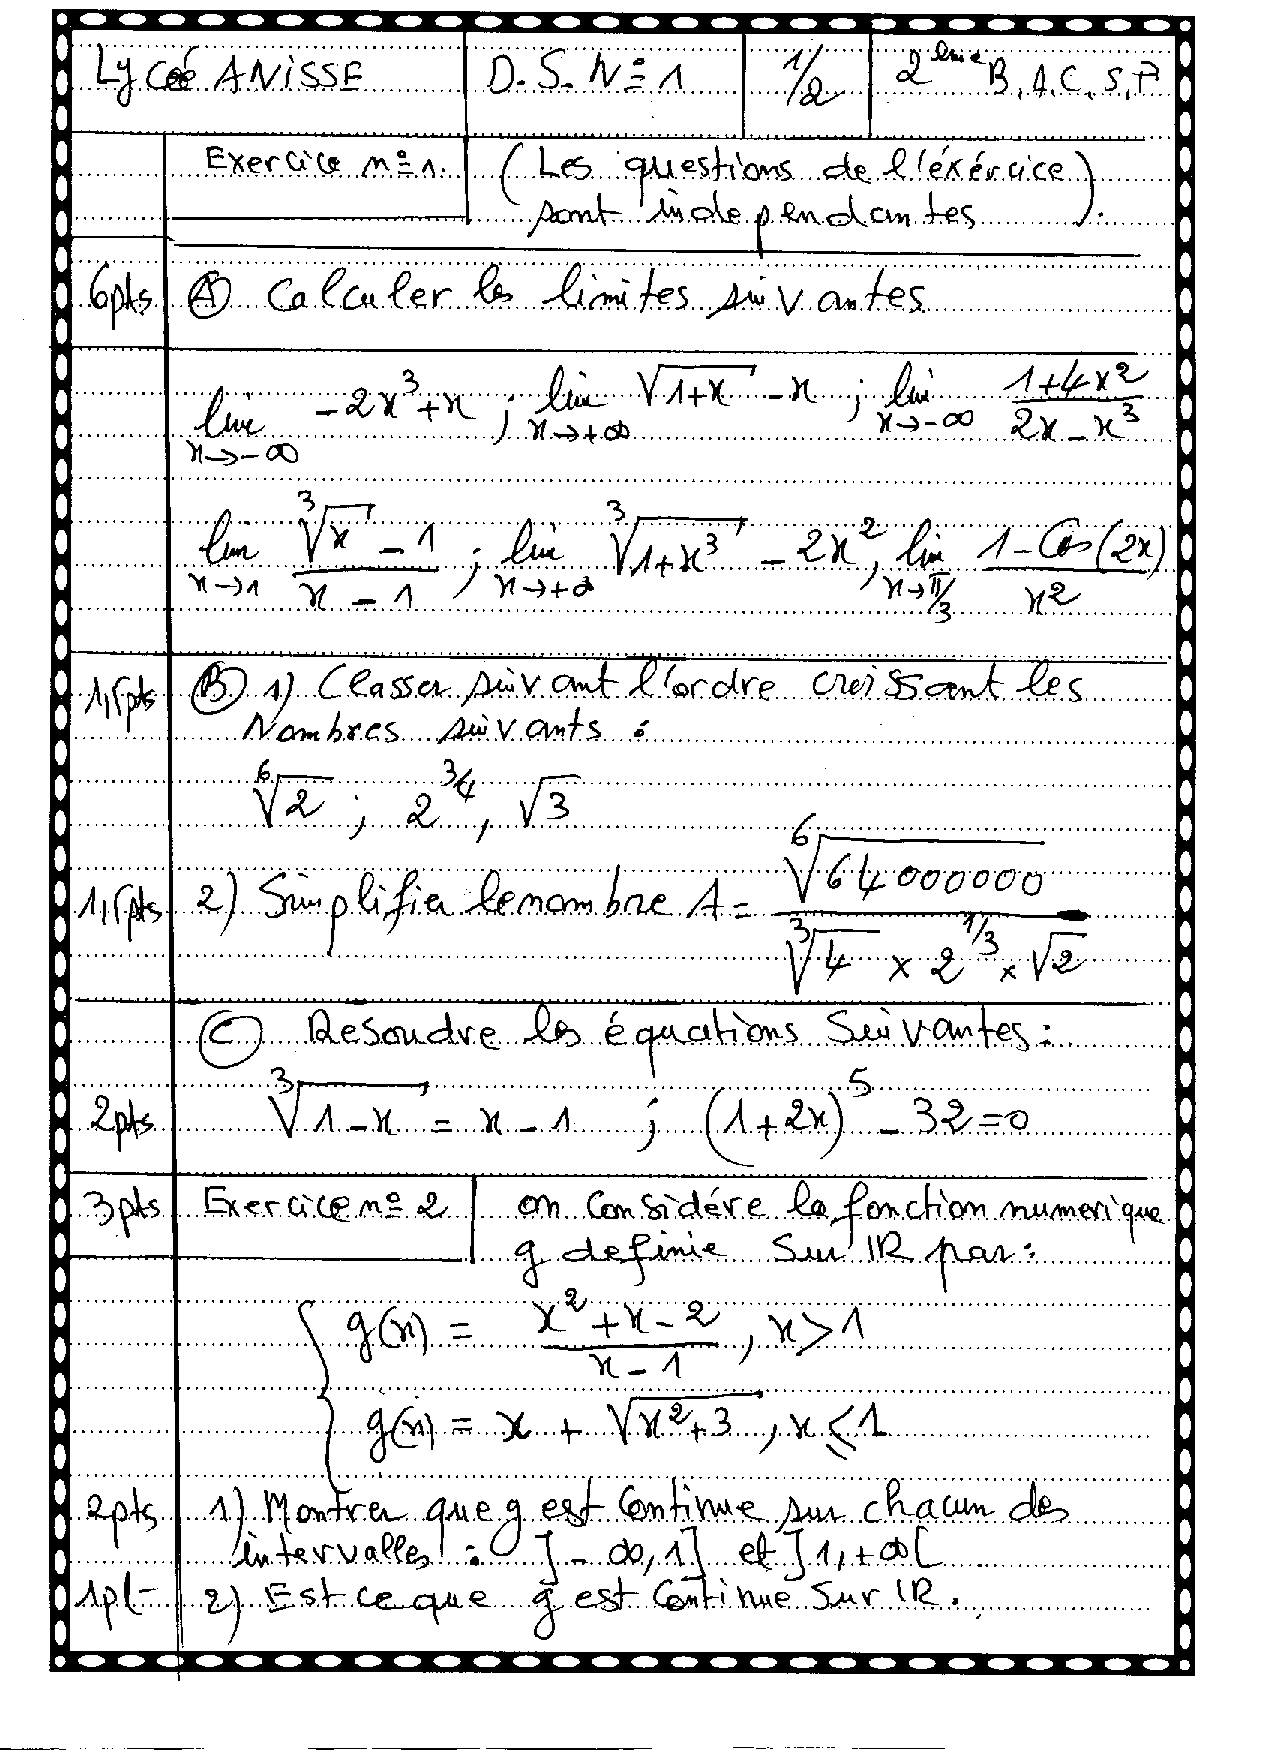 Lycée ANiSSE D.S.N°1 1/2 2ème B.A.C.S.P
Exercice n°1. (Les questions de l'éxércice)
sont indépendantes).
6pts (A) Calculer les limites suivantes
lim x→-∞ -2x³+x ; lim x→+∞ √(1+x) -x ; lim x→-∞ (1+4x²)/(2x-x³)
lim x→1 (³√x - 1)/(x - 1) ; lim x→+∞ ³√(1+x³) - 2x² , lim x→π/3 (1-Cos(2x))/x²
1,5pts (B) 1) Classer suivant l'ordre croissant les
Nombres suivants :
⁶√2 ; 2^(3/4) , √3
1,5pts 2) Simplifier le nombre A = ⁶√64000000 / (³√4 × 2^(1/3) × √2)
(C) Resoudre les équations Suivantes :
2pts ³√(1-x) = x - 1 ; (1+2x)⁵ - 32=0
3pts Exercice n° 2 on Considére la fonction numerique
g definie Sur IR par :
g(x) = (x²+x-2)/(x-1) , x>1
g(x) = x + √(x²+3) , x ≤ 1
2pts 1) Montrer que g est Continue sur chacun des
intervalles : ]-∞,1] et ]1,+∞[
1pt- 2) Est ce que g est Continue Sur IR.